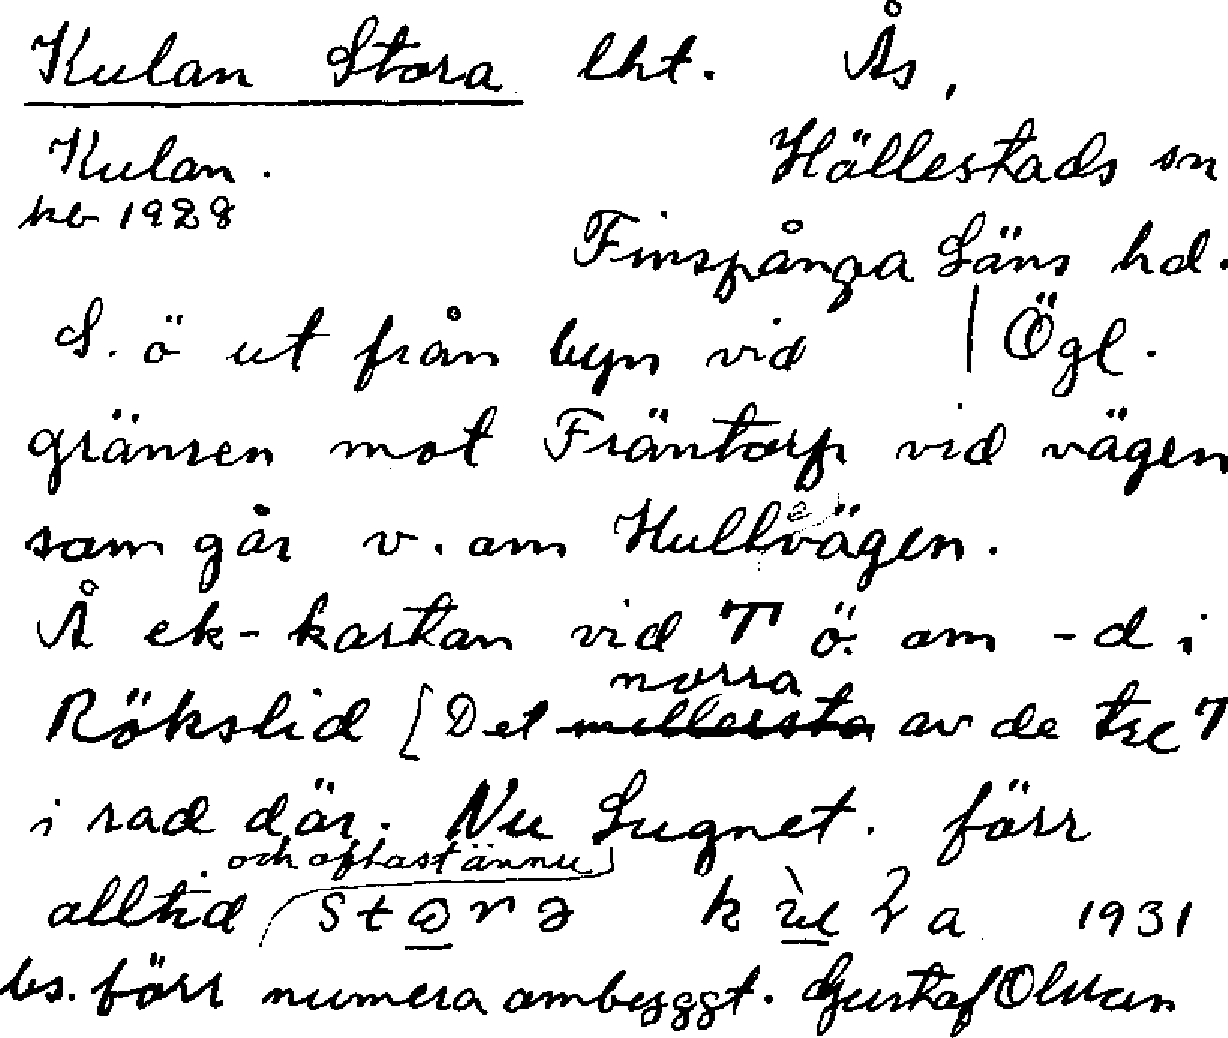 Kulan Stora lht. Ås,
Kulan. Hällestads sn
hb 1928
Finspånga Läns hd.
S. ö ut från byn vid | Ögl.
gränsen mot Fräntorp vid vägen
som går v. om Hullvägen.
Å ek-kartan vid T ö. om -d i
norra
Rökslid [Det mellersta av de tre T
i rad där. Nu Lugnet. förr
och oftast ännu
alltid 1931
bs. förr numera ombyggt. Gustaf Olsson